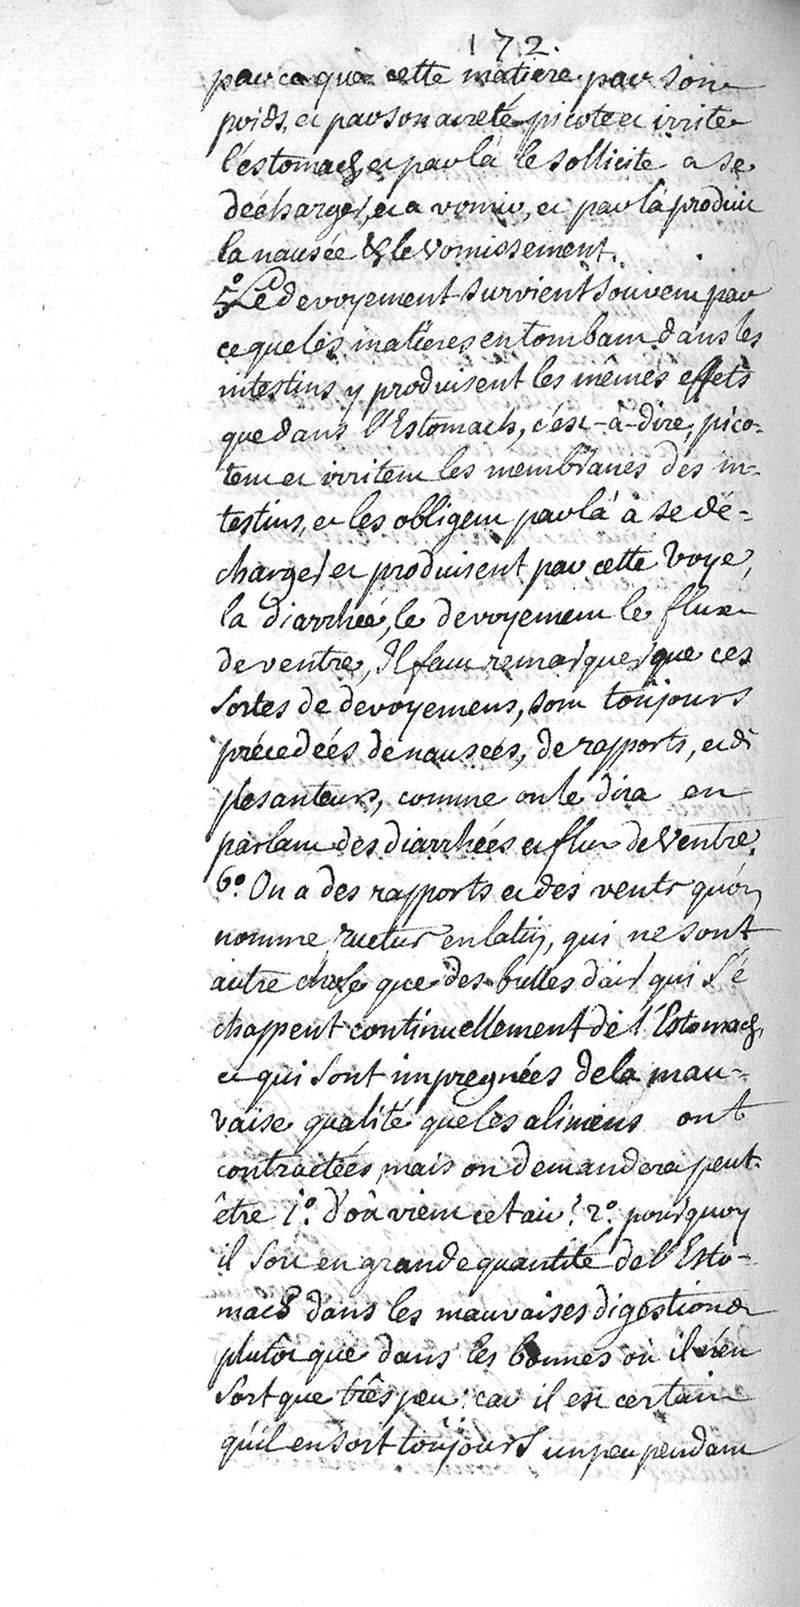 172.
par ce que cette matiere par son
poids, et par son acreté picote et irrite
l'éstomach, et par là le sollicite a se
décharger, et a vomir, et par là produit
la nausée & le vomissement.
5.º Le devoyement survient souvent par
ce que les matieres en tombant dans les
intestins y produisent les mêmes effets
que dans l'Estomach, c'ést-à-dire, pico-
tent et irritent les membranes des in-
testins, et les obligent par là à se dé-
charger et produisent par cette voye,
la diarrhée, le devoyement le flux
de ventre, Il faut remarquer que ces
sortes de devoyemens, sont toujours
précedées de nausées, de rapports, et de
pesanteurs, comme on le dira en
parlant des diarrhées et flux de ventre.
6.º On a des rapports et des vents qu'on
nomme ructus en latin, qui ne sont
autre chose que des bulles d'air qui s'é
chappent continuellement de l'Estomach,
et qui sont impregnées de la mau-
vaise qualité que les alimens ont
contractées, mais on demandera peut-
être 1.º d'où vient cet air? 2.º pourquoy
il sort en grande quantité de l'Esto-
mach dans les mauvaises digestions
plutôt que dans les bonnes où il n'en
sort que très peu: car il est certain
qu'il en sort toûjours un peu pendant